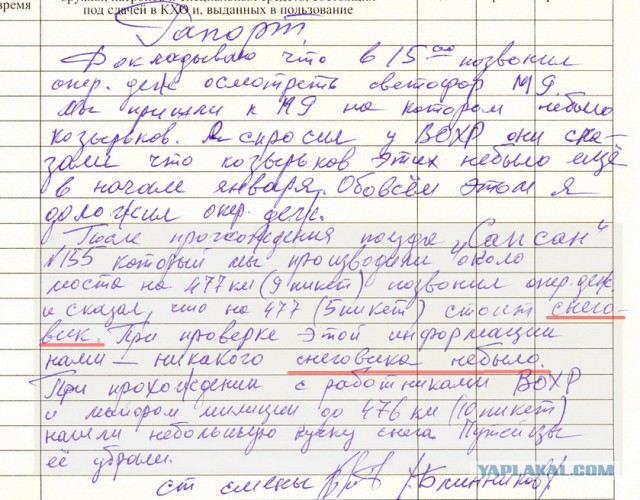 время
под сдачей в КХО и, выданных в пользование
Рапорт
Докладываю что в 15 00 позвонил
опер. деж осмотреть светофор М9.
Мы пришли к М9 на котором небыло
козырьков. Я спросил у ВОХР они ска-
зали что козырьков этих небыло ещё
в начале января. Обовсём этом я
доложил опер. деж.
После прохождения поезда „Сапсан“
№155 который мы производили около
моста на 477 км (9 пикет) позвонил опер. деж.
и сказал, что на 477 (5 пикет) стоит снего-
вик. При проверке этой информации
нами — никакого снеговика небыло.
При прохождении с работниками ВОХР
и майором милиции до 476 км (10 пикет)
нашли небольшую кучку снега. Пужейцы
её убрали.
ст смены /Блинников/
YAPLAKAL.COM